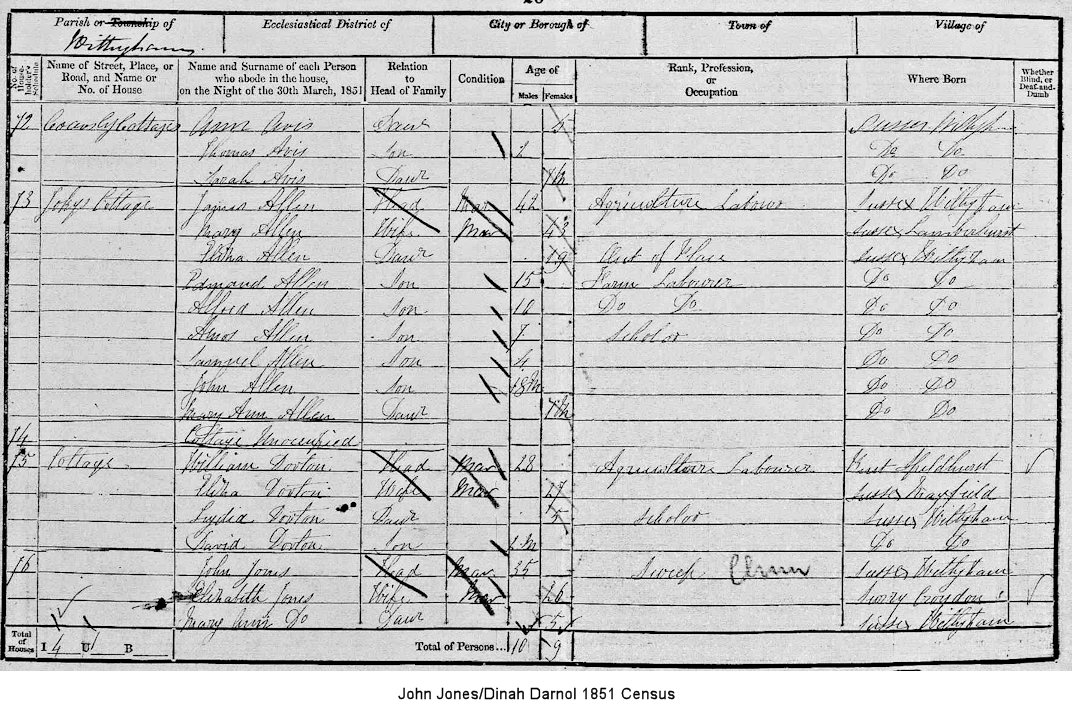 Parish or Township of Ecclesiastical District of City or Borough of Town of Village of
Withyham
No. of House-holder's Schedule Name of Street, Place, or Road, and Name or No. of House Name and Surname of each Person who abode in the house, on the Night of the 30th March, 1851 Relation to Head of Family Condition Age of Males Females Rank, Profession, or Occupation Where Born Whether Blind, or Deaf-and-Dumb
72 Cottages Ann Avis Daur 5 Sussex Withyham
Thomas Avis Son 2 Do Do
Sarah Avis Daur 7M Do Do
73 Cottage James Allen Head Mar 42 Agriculture Labourer Sussex Withyham
Mary Allen Wife Mar 43 Sussex Lamberhurst
Eliza Allen Daur 19 Out of Place Sussex Withyham
Edmund Allen Son 15 Farm Labourer Do Do
Alfred Allen Son 10 Do Do Do Do
Amos Allen Son 7 Scholar Do Do
Samuel Allen Son 4 Do Do
John Allen Son 18M Do Do
Mary Ann Allen Daur Do Do
74 Cottage Unoccupied
75 Cottage William Dorton Head Mar 28 Agriculture Labourer Kent Speldhurst
Eliza Dorton Wife Mar 27 Sussex Mayfield
Lydia Dorton Daur 5 Scholar Sussex Withyham
David Dorton Son Do Do
76 John Jones Head Mar 25 Sweep Sussex Withyham
Elizabeth Jones Wife Mar 26 Surry Croydon
Mary Ann Do Daur 5 Sussex Withyham
Total of Houses I 4 U 1 B Total of Persons... 10 9
John Jones/Dinah Darnol 1851 Census